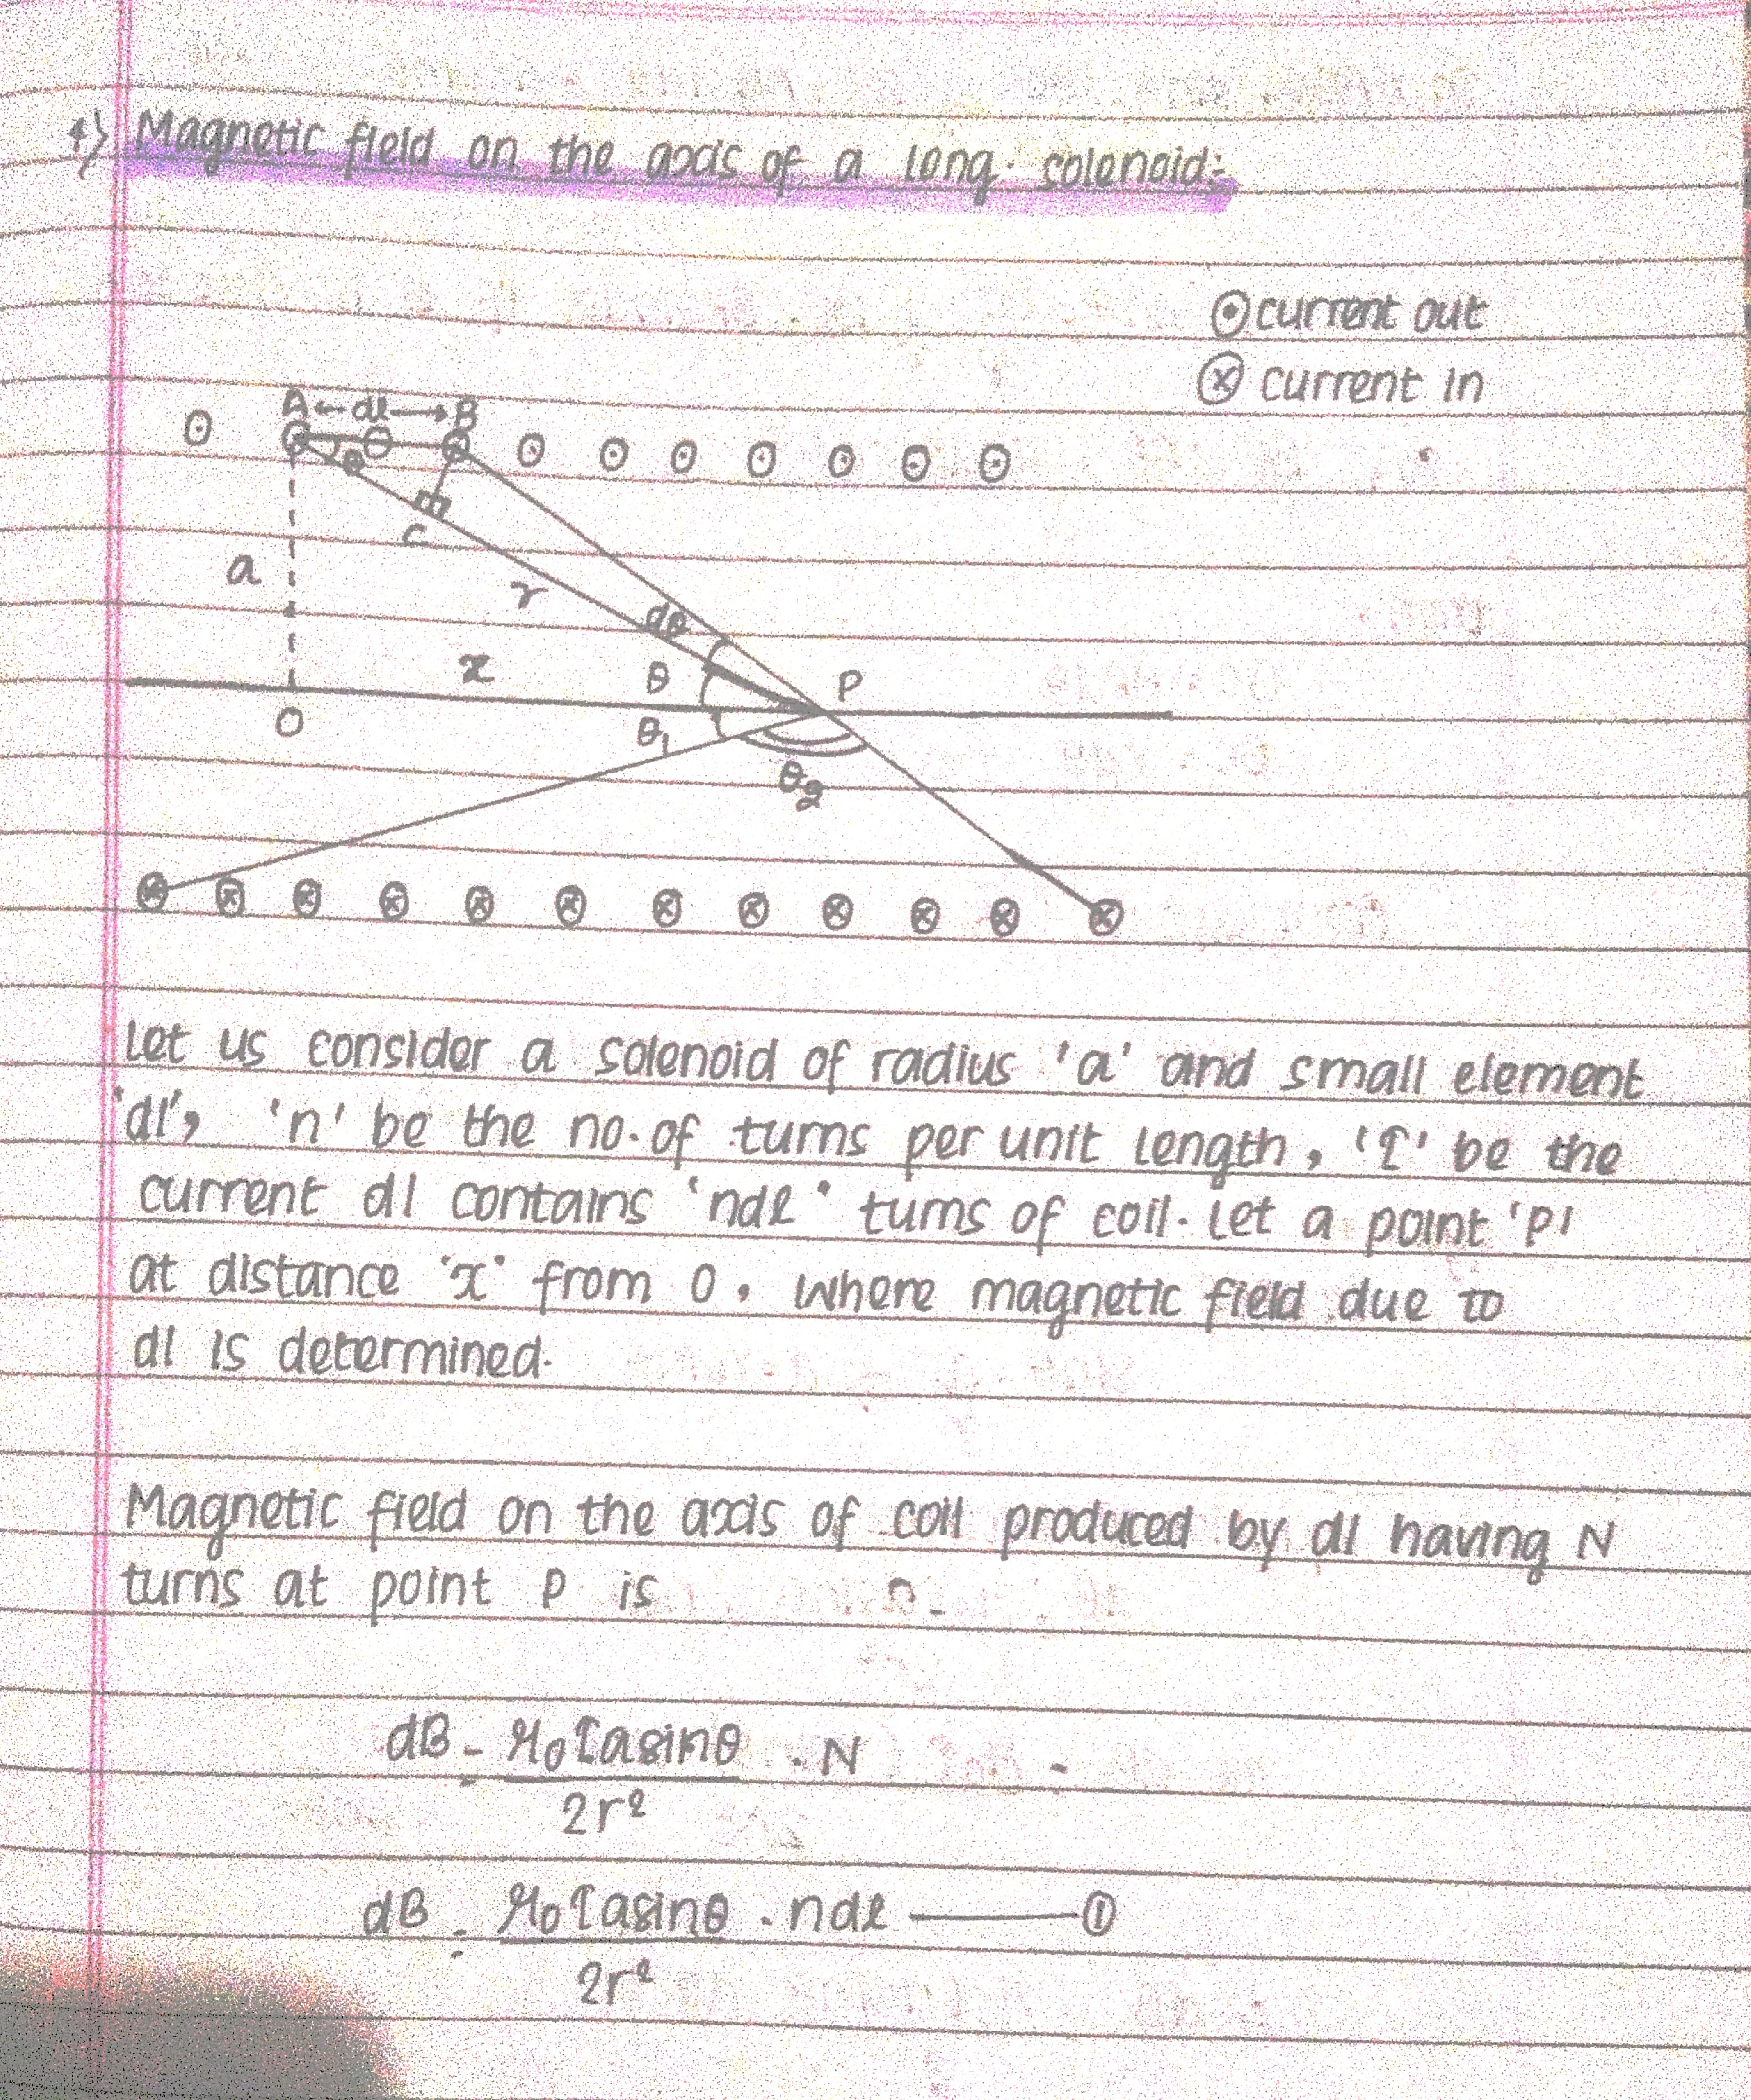 4) Magnetic field on the axis of a long solenoid:
⊙ current out
⊗ current in
A ← dl → B
θ
C
a
r
dθ
x
θ
P
O
θ₁
θ₂
Let us consider a solenoid of radius 'a' and small element
'dl', 'n' be the no. of turns per unit length, 'I' be the
current dl contains 'ndl' turns of coil. Let a point 'P'
at distance 'x' from O, where magnetic field due to
dl is determined.
Magnetic field on the axis of coil produced by dl having N
turns at point P is
dB = μ₀Iasinθ/2r² . N
dB = μ₀Iasinθ/2r² . ndl —— ①